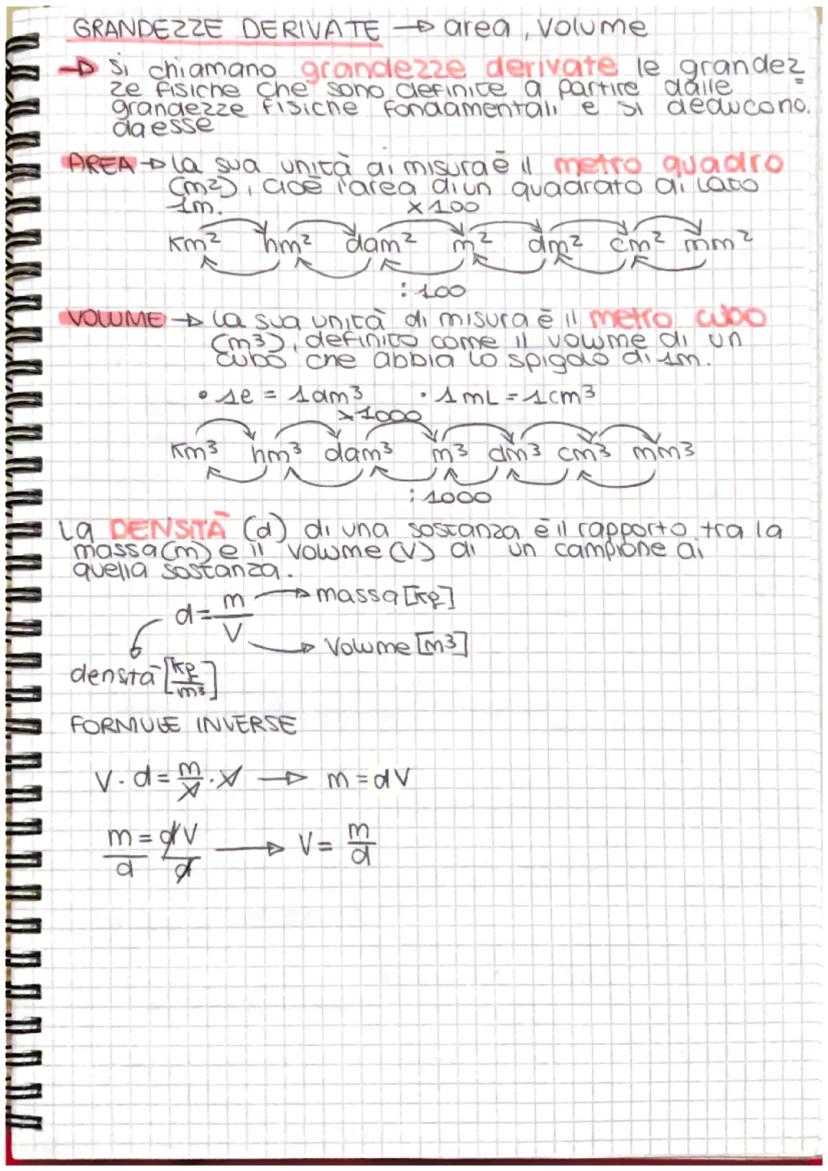 GRANDEZZE DERIVATE → area, volume
→ Si chiamano grandezze derivate le grandez=
ze fisiche che sono definite a partire dalle
grandezze fisiche fondamentali e si deducono
da esse
AREA → La sua unità di misura è il metro quadro
(m²), cioè l'area di un quadrato di lato
1m.
x100
km² hm² dam² m² dm² cm² mm²
:100
VOLUME → La sua unità di misura è il metro cubo
(m³), definito come il volume di un
cubo che abbia lo spigolo di 1m.
• 1l = 1dm³ • 1mL = 1cm³
x1000
km³ hm³ dam³ m³ dm³ cm³ mm³
:1000
La DENSITÀ (d) di una sostanza è il rapporto tra la
massa (m) e il volume (V) di un campione di
quella sostanza.
d = m/V → massa [kg]
→ Volume [m³]
densità [kg/m³]
FORMULE INVERSE
V · d = m/V · V → m = dV
m/d = dV/d → V = m/d